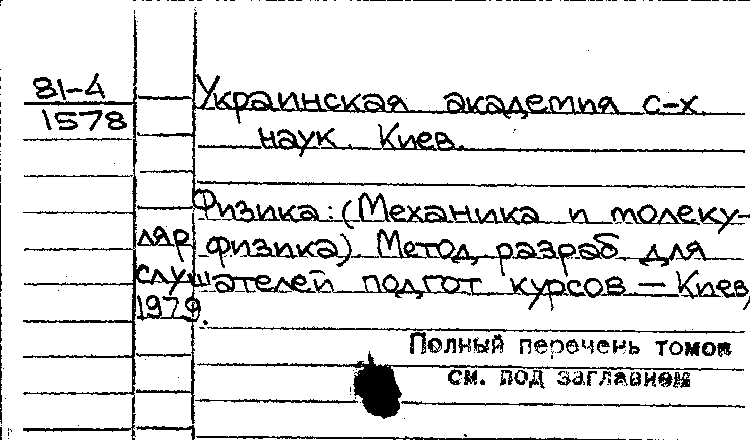 81-4
1578
Украинская академия с-х.
наук. Киев.
Физика: (Механика и молеку-
ляр физика). Метод. разраб для
слушателей подгот курсов — Киев,
1979.
Полный перечень томов
см. под заглавием